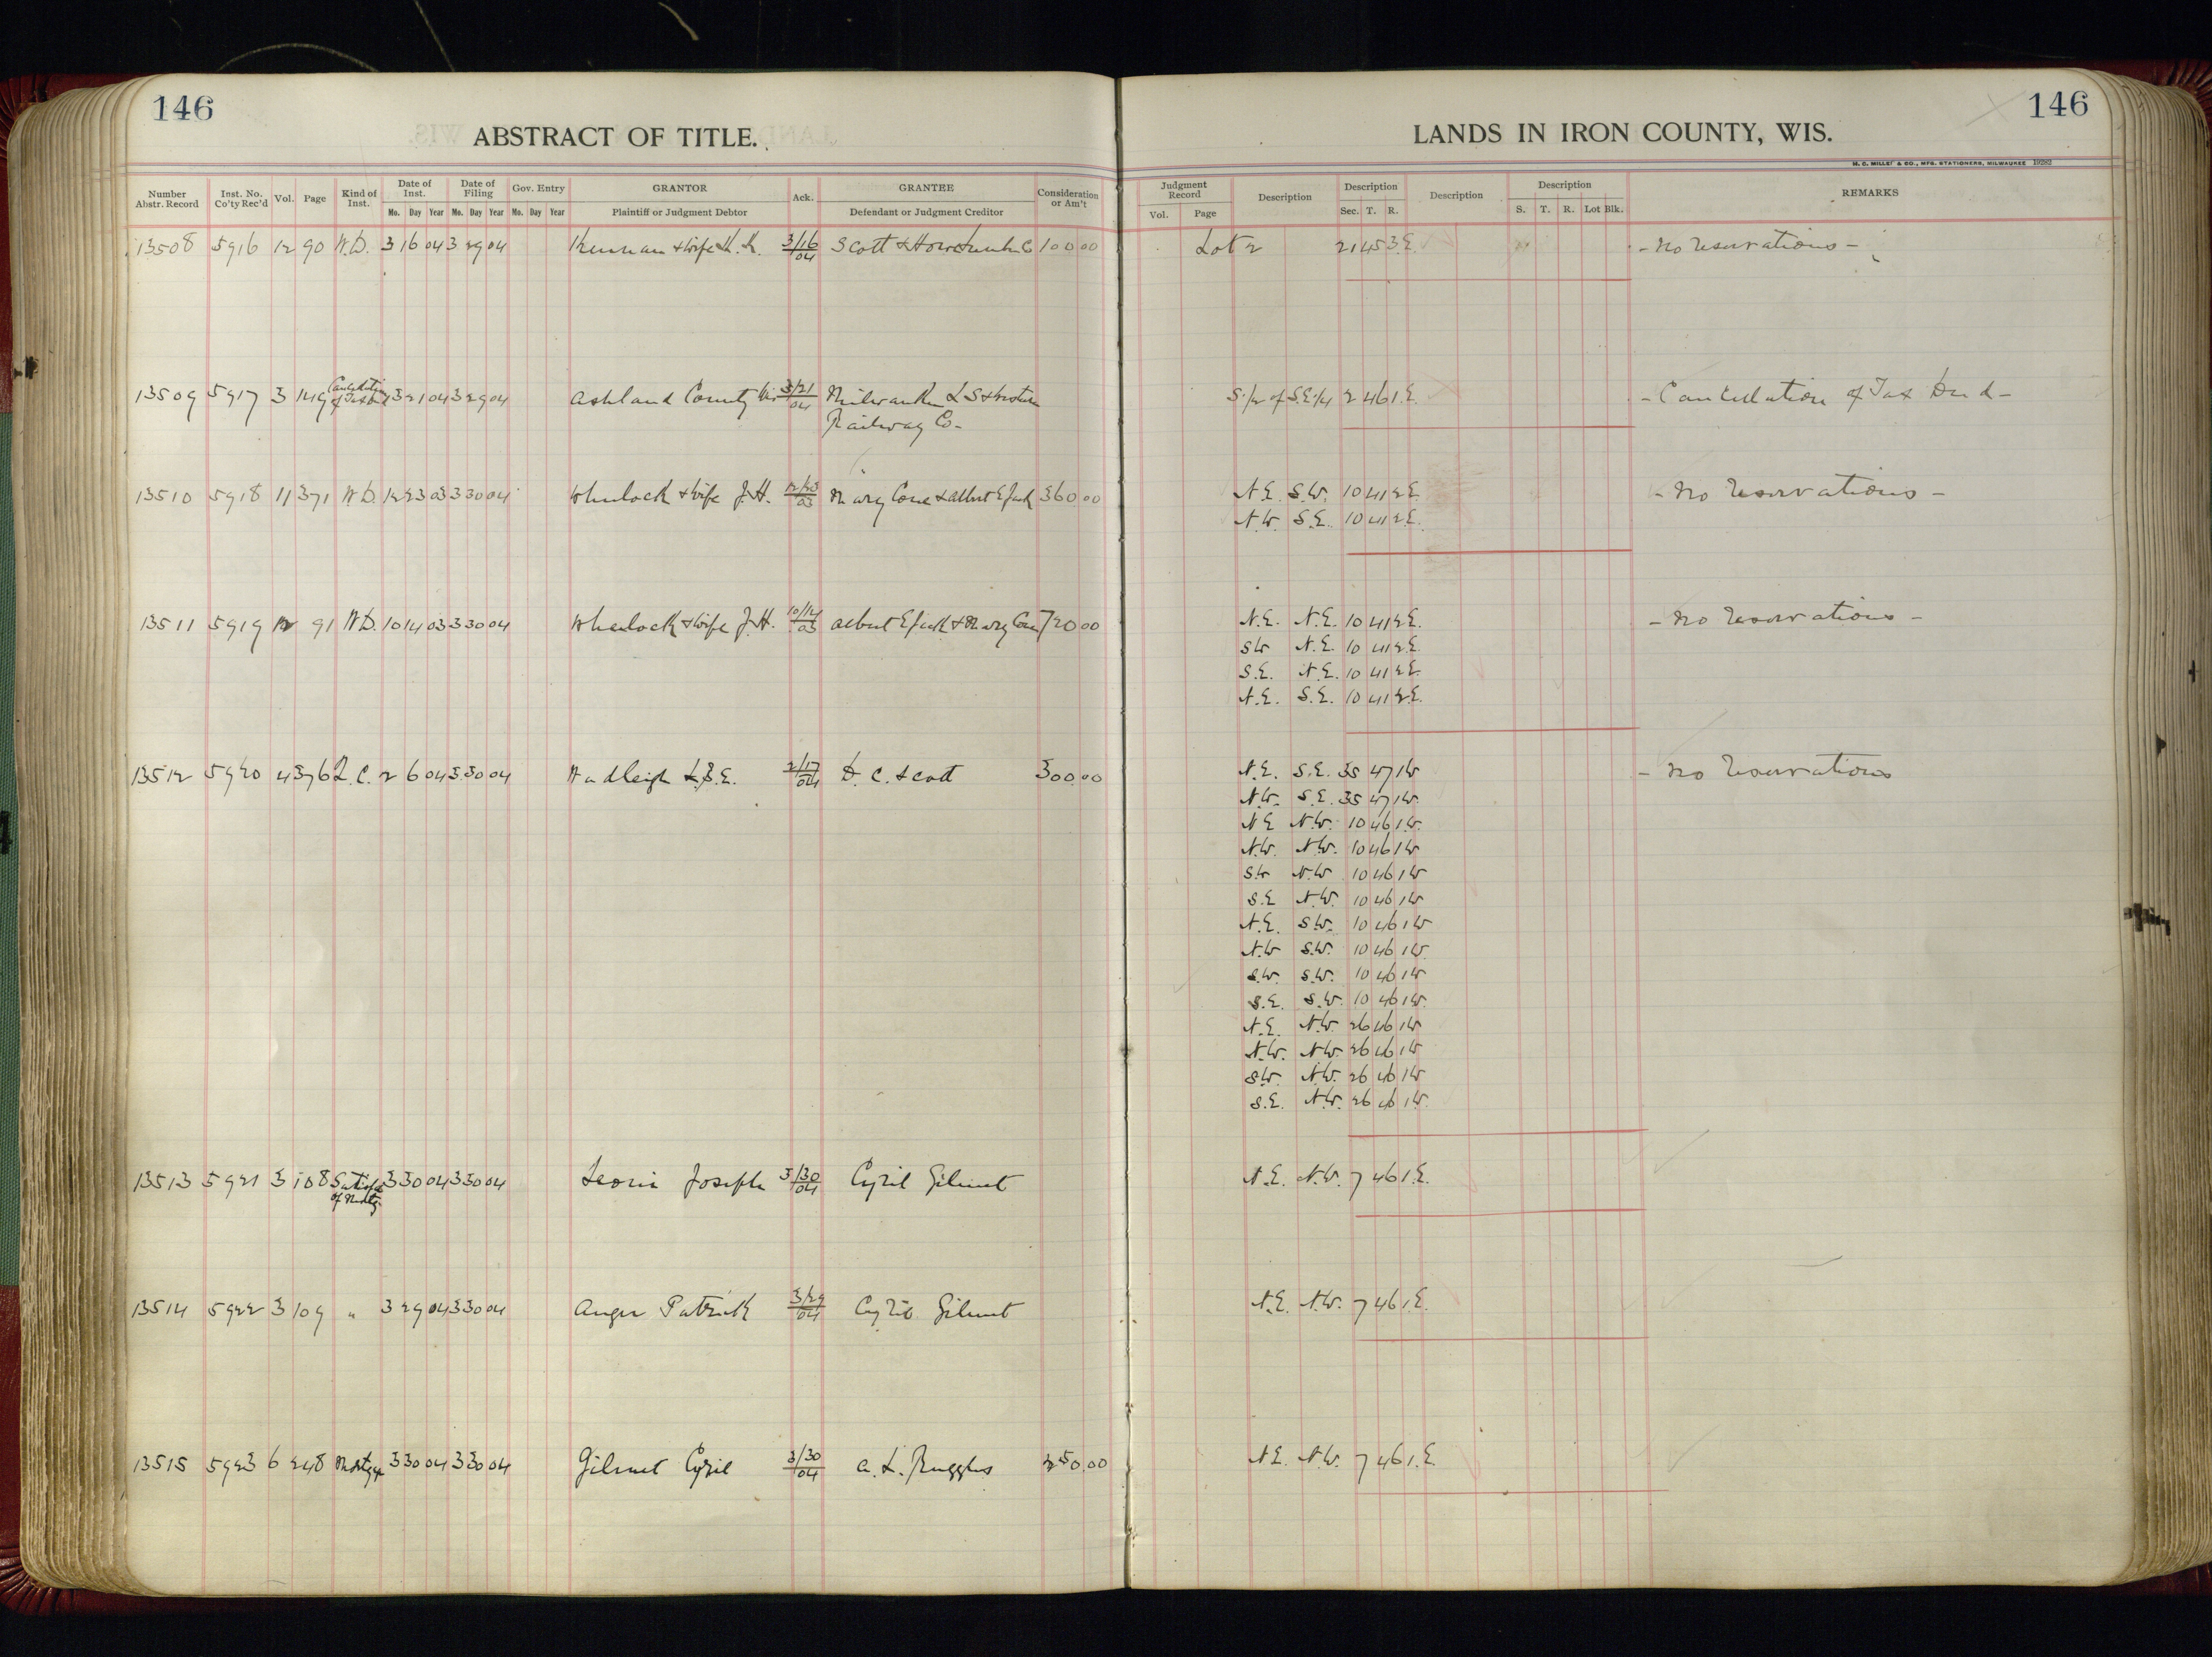 146
ABSTRACT OF TITLE.
Number Abstr. Record Inst. No. Co'ty Rec'd Vol. Page Kind of Inst. Date of Inst. Mo. Day Year Date of Filing Mo. Day Year Gov. Entry Mo. Day Year GRANTOR Plaintiff or Judgment Debtor Ack. GRANTEE Defendant or Judgment Creditor Consideration or Am't
13508 5916 12 90 W.D. 3 16 04 3 29 04 & wife 3/16/04 Scott & Howe 100 00
13509 5917 3 149 Cancellation of Tax Deed 3 21 04 3 29 04 Ashland County Wis 3/21/04 Milwaukee L S & Western
Railway Co-
13510 5918 11 371 W.D. 12 23 03 3 30 04 Wheelock & wife J.H. 12/23/03 Mary Cone & Albert E 360 00
13511 5919 12 91 W.D. 10 14 03 3 30 04 Wheelock & wife J.H. 10/14/03 Albert E & Mary Cone 720 00
13512 5920 4 376 Q.C. 2 6 04 3 30 04 Wadleigh 2/17/04 D. C. Scott 300.00
13513 5921 3 108 3 30 04 3 30 04 Joseph 3/30/04 Cyril Gilmet
of Mortg.
13514 5922 3 109 " 3 29 04 3 30 04 Anger Patrick 3/29/04 Cyril Gilmet
13515 5923 6 248 Mortgage 3 30 04 3 30 04 Gilmet Cyril 3/30/04 A. L. Ruggles 50.00
146
LANDS IN IRON COUNTY, WIS.
H. C. MILLER & CO., MFG. STATIONERS, MILWAUKEE 19282
Judgment Record Vol. Page Description Description Sec. T. R. Description Description S. T. R. Lot Blk. REMARKS
Lot 2 21 45 3 E. - No reservations -
S. 1/2 of S.E 1/4 2 46 1 E. - Cancellation of Tax Deed -
N.E. S.W. 10 41 2 E. - No Reservations -
N.W. S.E. 10 41 2 E.
N.E. N.E. 10 41 2 E. - No Reservations -
SW N.E. 10 41 2 E.
S.E. N.E. 10 41 2 E.
N.E. S.E. 10 41 2 E.
N.E. S.E. 35 47 1 W - No Reservations
N.W. S.E. 35 47 1 W.
N E N.W. 10 46 1 W.
N.W. N.W. 10 46 1 W
SW N.W. 10 46 1 W
S.E N.W. 10 46 1 W
N.E. S.W. 10 46 1 W
N.W S.W. 10 46 1 W.
S.W. S.W. 10 46 1 W
S.E. S.W. 10 46 1 W.
N.E. N.W. 26 46 1 W
N.W. N.W. 26 46 1 W
S.W. N.W. 26 46 1 W
S.E. N.W. 26 46 1 W.
N.E. N.W. 7 46 1 E.
N.E. N.W. 7 46 1 E.
N E. N.W. 7 46 1 E.